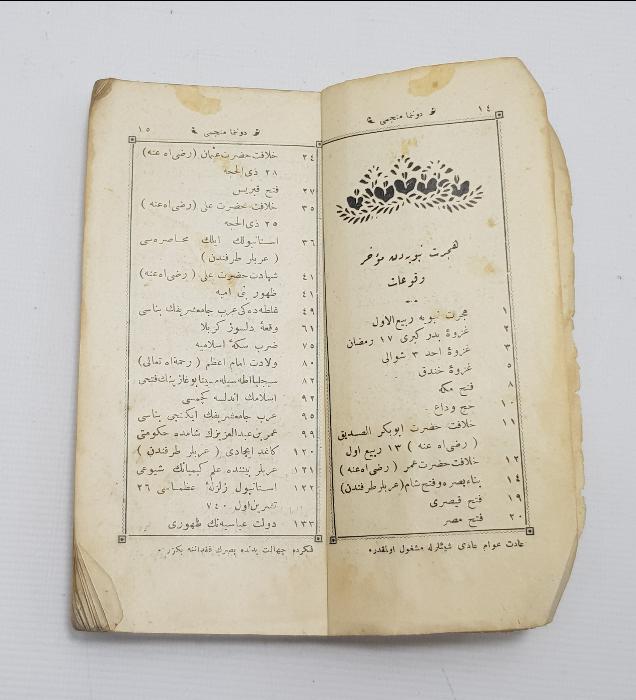 ١٤ دونما منجمى
هجرت نبويه‌دن مؤخر
وقوعات
١ هجرت نبويه ربيع الاول
٢ غزوۀ بدر كبرى ١٧ رمضان
٣ غزوۀ احد ٣ شوالى
٥ غزوۀ خندق
٨ فتح مكه
١٠ حج وداع
١١ خلافت حضرت ابوبكر الصديق
( رضى اه عنه ) ١٣ ربيع اول
١٢ خلافت حضرت عمر ( رضى اه عنه )
١٤ بناء بصره و فتح شام (عربلر طرفندن)
١٩ فتح قيصرى
٢٠ فتح مصر
عادت عوام عادى شيئلرله مشغول اولمقدر.
١٥ دونما منجمى
٢٤ خلافت حضرت عثمان (رضى اه عنه)
٢٨ ذى الحجه
٢٧ فتح قبريس
٣٥ خلافت حضرت على (رضى اه عنه )
٢٥ ذى الحجه
٣٦ استانبولك ايلك محاصره سى
( عربلر طرفندن )
٤١ شهادت حضرت على ( رضى اه عنه)
٤١ ظهور بنى اميه
٤٩ غلطه ده كى عرب جامعشريفك بناسى
٦١ وقعۀ دلسوز كربلا
٧٥ ضرب سكۀ اسلاميه
٨٠ ولادت امام اعظم ( رحمة اه تعالى)
٨٢ سيجليا اطه سيله بوغازينك فتحى
٩٢ اسلامك اندلسه كچمسى
٩٥ عرب جامعشريفك ايكنجى بناسى
٩٩ عمر بن عبدالعزيزك شامده حكومتى
١٢٠ كاغد ايجادى ( عربلر طرفندن )
١٢١ عربلر بيننده علم كيميانك شيوعى
١٢٢ استانبول زلزلۀ عظماسى ٢٦
تشرين اول ٧٤٠
١٣٣ دولت عباسيه نك ظهورى
فكرده جهالت بدنده بصرك فقداننه بكزر.